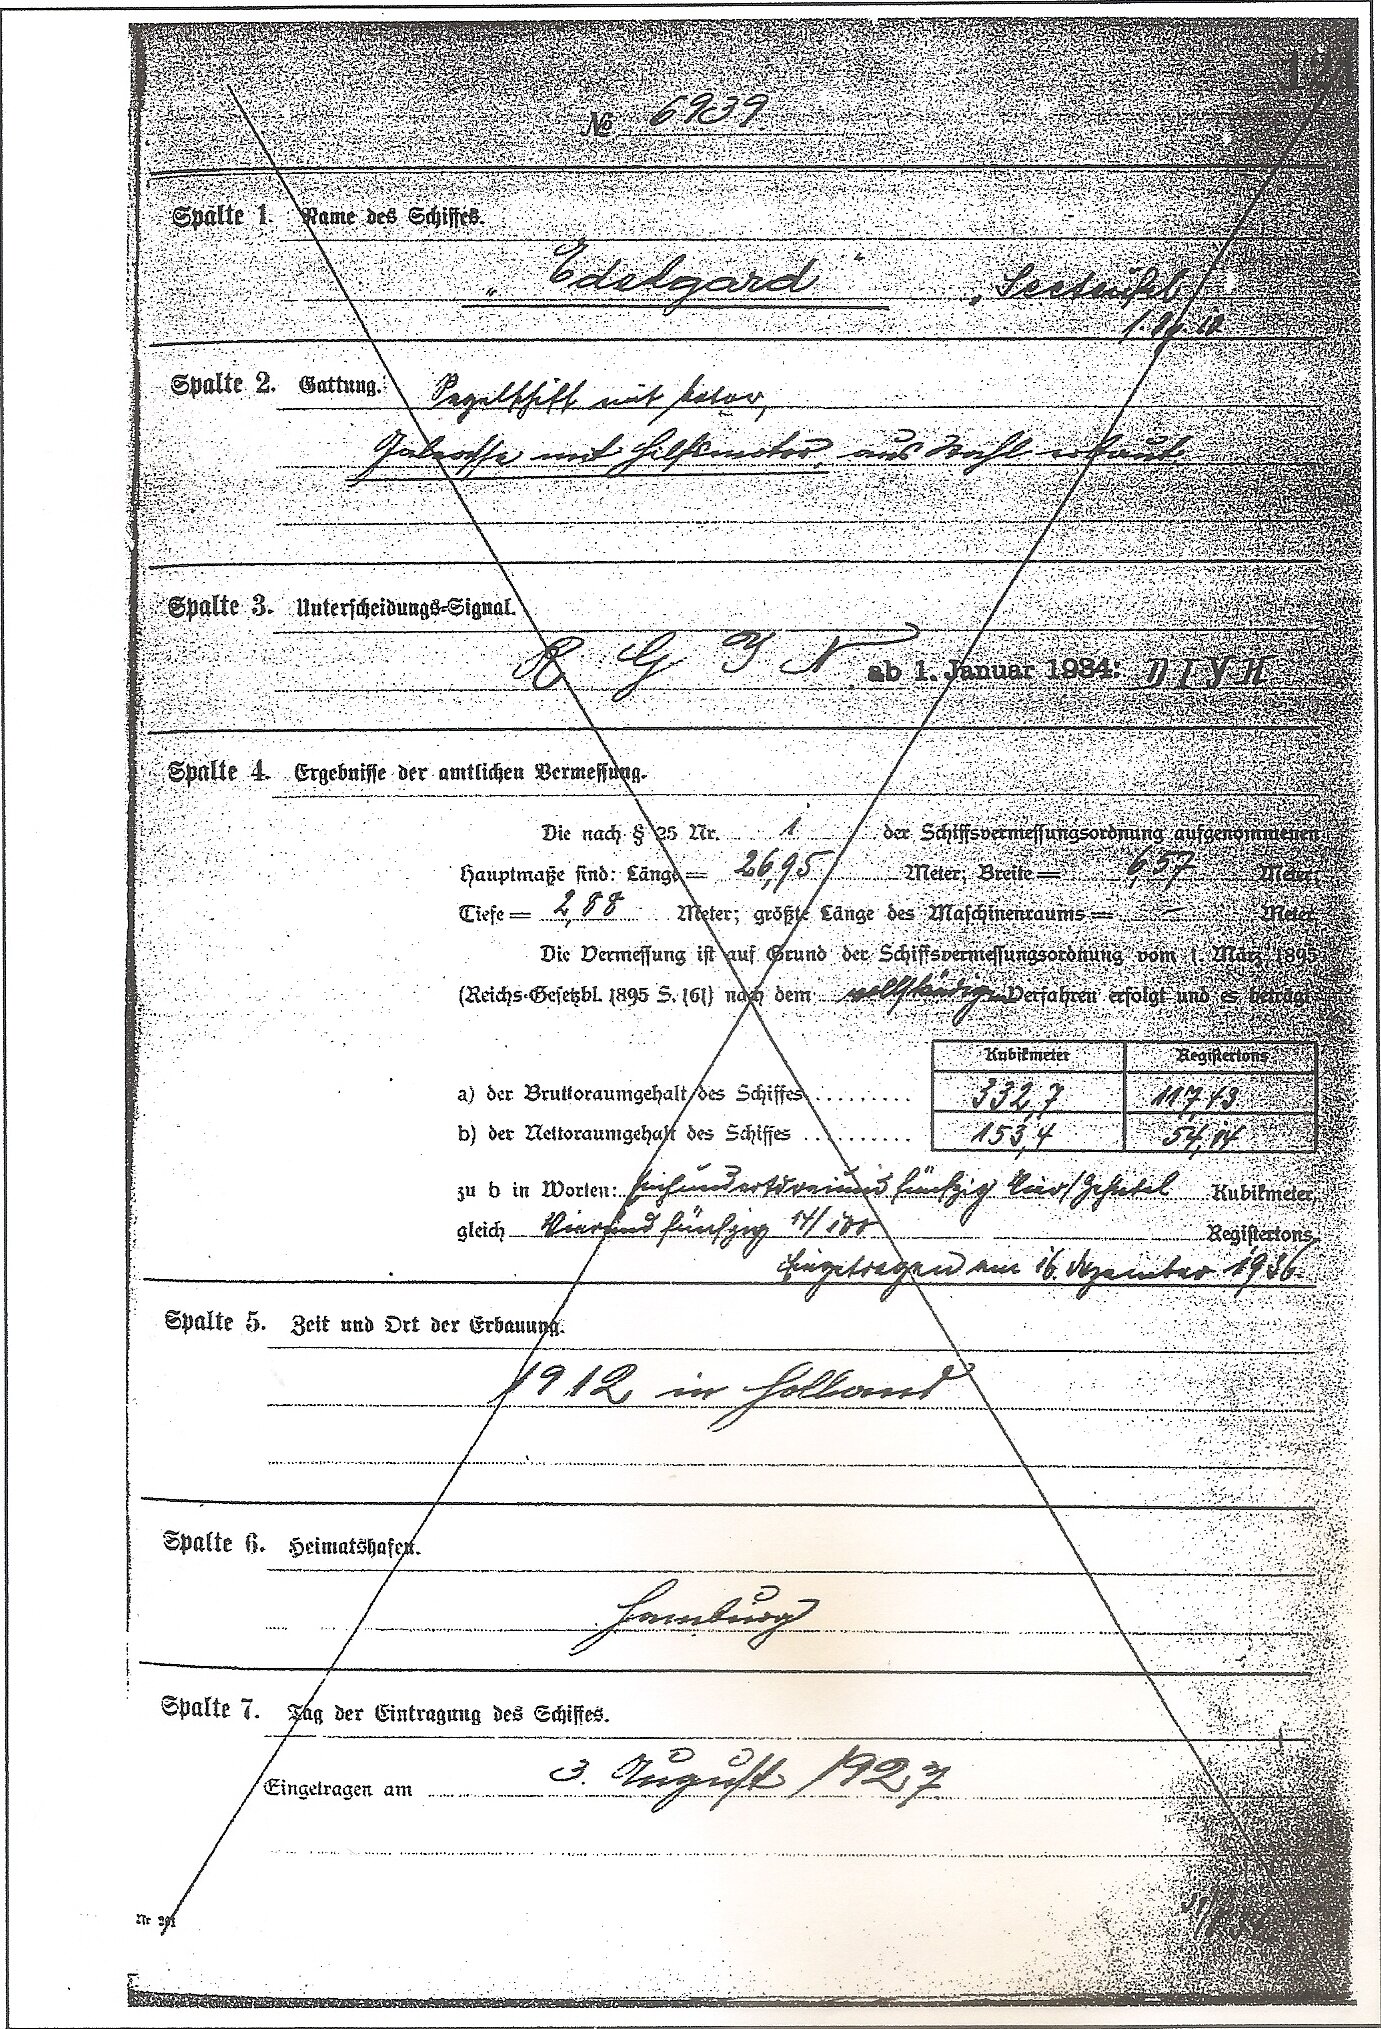 № 6939.
Spalte 1. Name des Schiffes.
„Edelgard“ „Seeteufel
Spalte 2. Gattung. Segelschiff mit Motor,
Galeasse mit Hilfsmotor, aus Stahl erbaut
Spalte 3. Unterscheidungs-Signal.
R G J N ab 1. Januar 1934: D J Y H
Spalte 4. Ergebnisse der amtlichen Vermessung.
Die nach § 25 Nr. 1 der Schiffsvermessungsordnung aufgenommenen
Hauptmaße sind: Länge = 26,95 Meter; Breite = 6,57 Meter;
Tiefe = 2,88 Meter; größte Länge des Maschinenraums = — Meter.
Die Vermessung ist auf Grund der Schiffsvermessungsordnung vom 1. März 1895
(Reichs-Gesetzbl. 1895 S. 161) nach dem vollständigen Verfahren erfolgt und es beträgt
Kubikmeter Registertons
a) der Bruttoraumgehalt des Schiffes .......... 332,7 117,43
b) der Nettoraumgehalt des Schiffes .......... 153,4 54,14
zu b in Worten: Einhundertdreiundfünfzig Vier/Zehntel Kubikmeter,
gleich Vierundfünfzig 14/100 Registertons.
Eingetragen am 16. Dezember 1936.
Spalte 5. Zeit und Ort der Erbauung.
1912 in Holland
Spalte 6. Heimatshafen.
Hamburg
Spalte 7. Tag der Eintragung des Schiffes.
Eingetragen am 3. August 1927
Nr 201